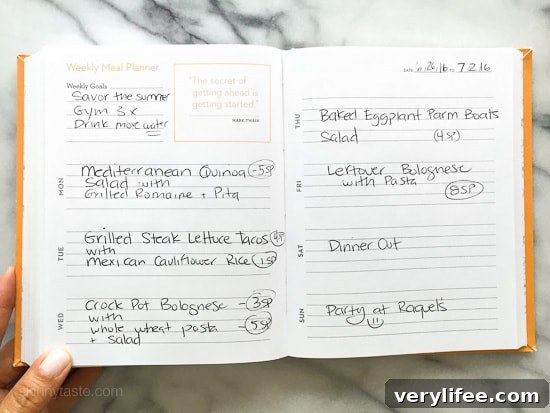 Weekly Meal Planner
Weekly Goals
Savor the summer
Gym 3x
Drink more water
"The secret of
getting ahead is
getting started."
MARK TWAIN
MON
Mediterranean Quinoa -5SP
Salad with
Grilled Romaine + Pita
TUE
Grilled Steak Lettuce Tacos 4SP
with
Mexican Cauliflower Rice 1SP
WED
Crock Pot Bolognese -3SP
with
whole wheat pasta -5SP
+ salad
DATE TO 7 2 16
THU
Baked Eggplant Parm Boats
Salad (4SP)
FRI
Leftover Bolognese
with Pasta
8SP
SAT
Dinner Out
SUN
Party at Raquels
skinnytaste.com
verylifee.com